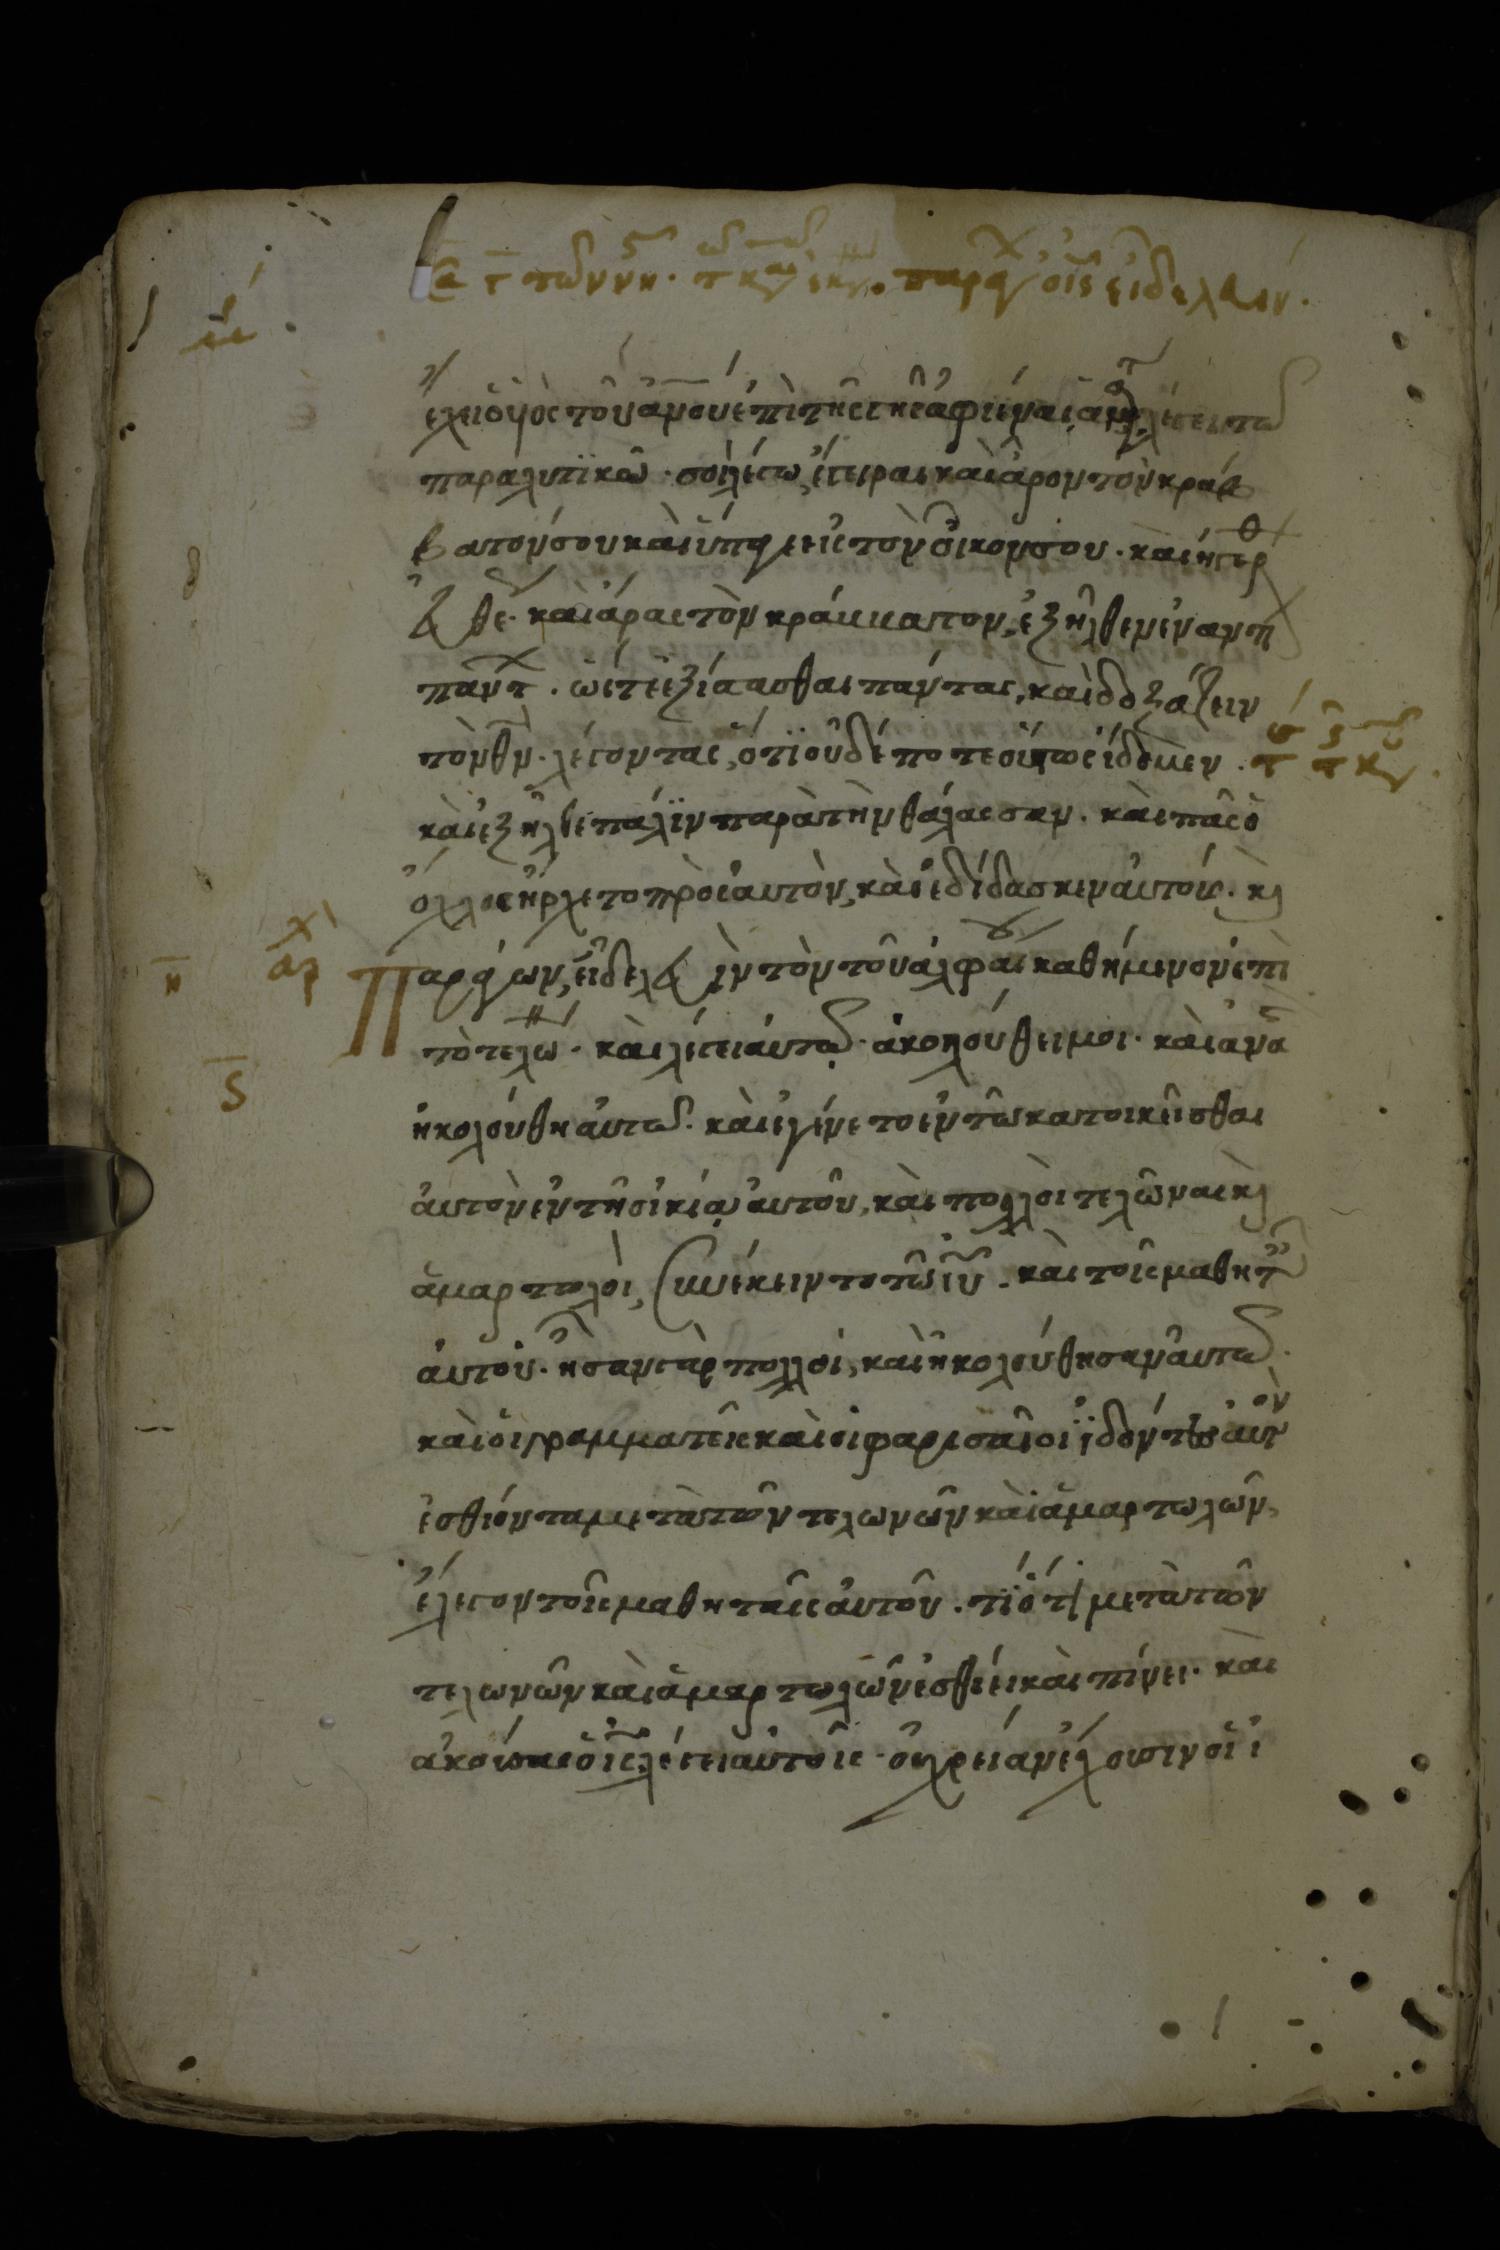 ἔχει ὁ υἱὸς τοῦ ἀνου ἐπὶ τῆς γῆς ἀφιέναι ἁμ λέγει τῶ
παραλυτϊκῶ · σοὶ λέγω, ἔγειραι καὶ ἆρον τὸν κράβ
βατόν σου καὶ ὕπαγε εἰς τὸν οἶκον σου · καὶ ἠγέρ
θη εὐθέ · καὶ ἄρας τὸν κράββατον, ἐξῆλθεν ἐναντί
πάντ · ὥστε ἐξίστασθαι πάντας, καὶ δοξάζειν
τὸν θν · λέγοντας, ὅτϊ οὐδέποτε οὕτως εἴδομεν ·
καὶ ἐξῆλθε πάλϊν παρὰ τὴν θάλασσαν · καὶ πᾶς ὁ
ὄχλος ἤρχετο πρὸς αὐτὸν, καὶ ἐδίδασκεν αὐτούς · κὶ
Παράγων, εἶδε λευῒν τὸν τοῦ ἀλφαί καθήμενον ἐπὶ
τὸ τελώ · καὶ λέγει αὐτῶ · ἀκολούθει μοι · καὶ ἀνασ
ἠκολούθη αὐτῶ · καὶ ἐγένετο ἐν τῶ κατακεῖσθαι
αὐτὸν ἐν τῆ οἰκία αὐτοῦ, καὶ πολλοὶ τελῶναι κὶ
ἁμαρτωλοὶ, συνέκειντο τῶ ιυ · καὶ τοῖς μαθητ
αὐτοῦ · ἦσαν γὰρ πολλοί, καὶ ἠκολούθησαν αὐτῶ ·
καὶ οἱ γραμματεῖς καὶ οἱ φαρισαῖοι ἰδόντες αὐτὸν
ἐσθίοντα μετὰ τῶν τελωνῶν καὶ ἁμαρτωλῶν,
ἔλεγον τοῖς μαθηταῖς αὐτοῦ · τί ὅτι μετὰ τῶν
τελωνῶν καὶ ἁμαρτωλῶν ἐσθίει καὶ πίνει · καὶ
ἀκούσας ὁ ις λέγει αὐτοῖς · οὐ χρείαν ἔχουσιν οἱ ἰ